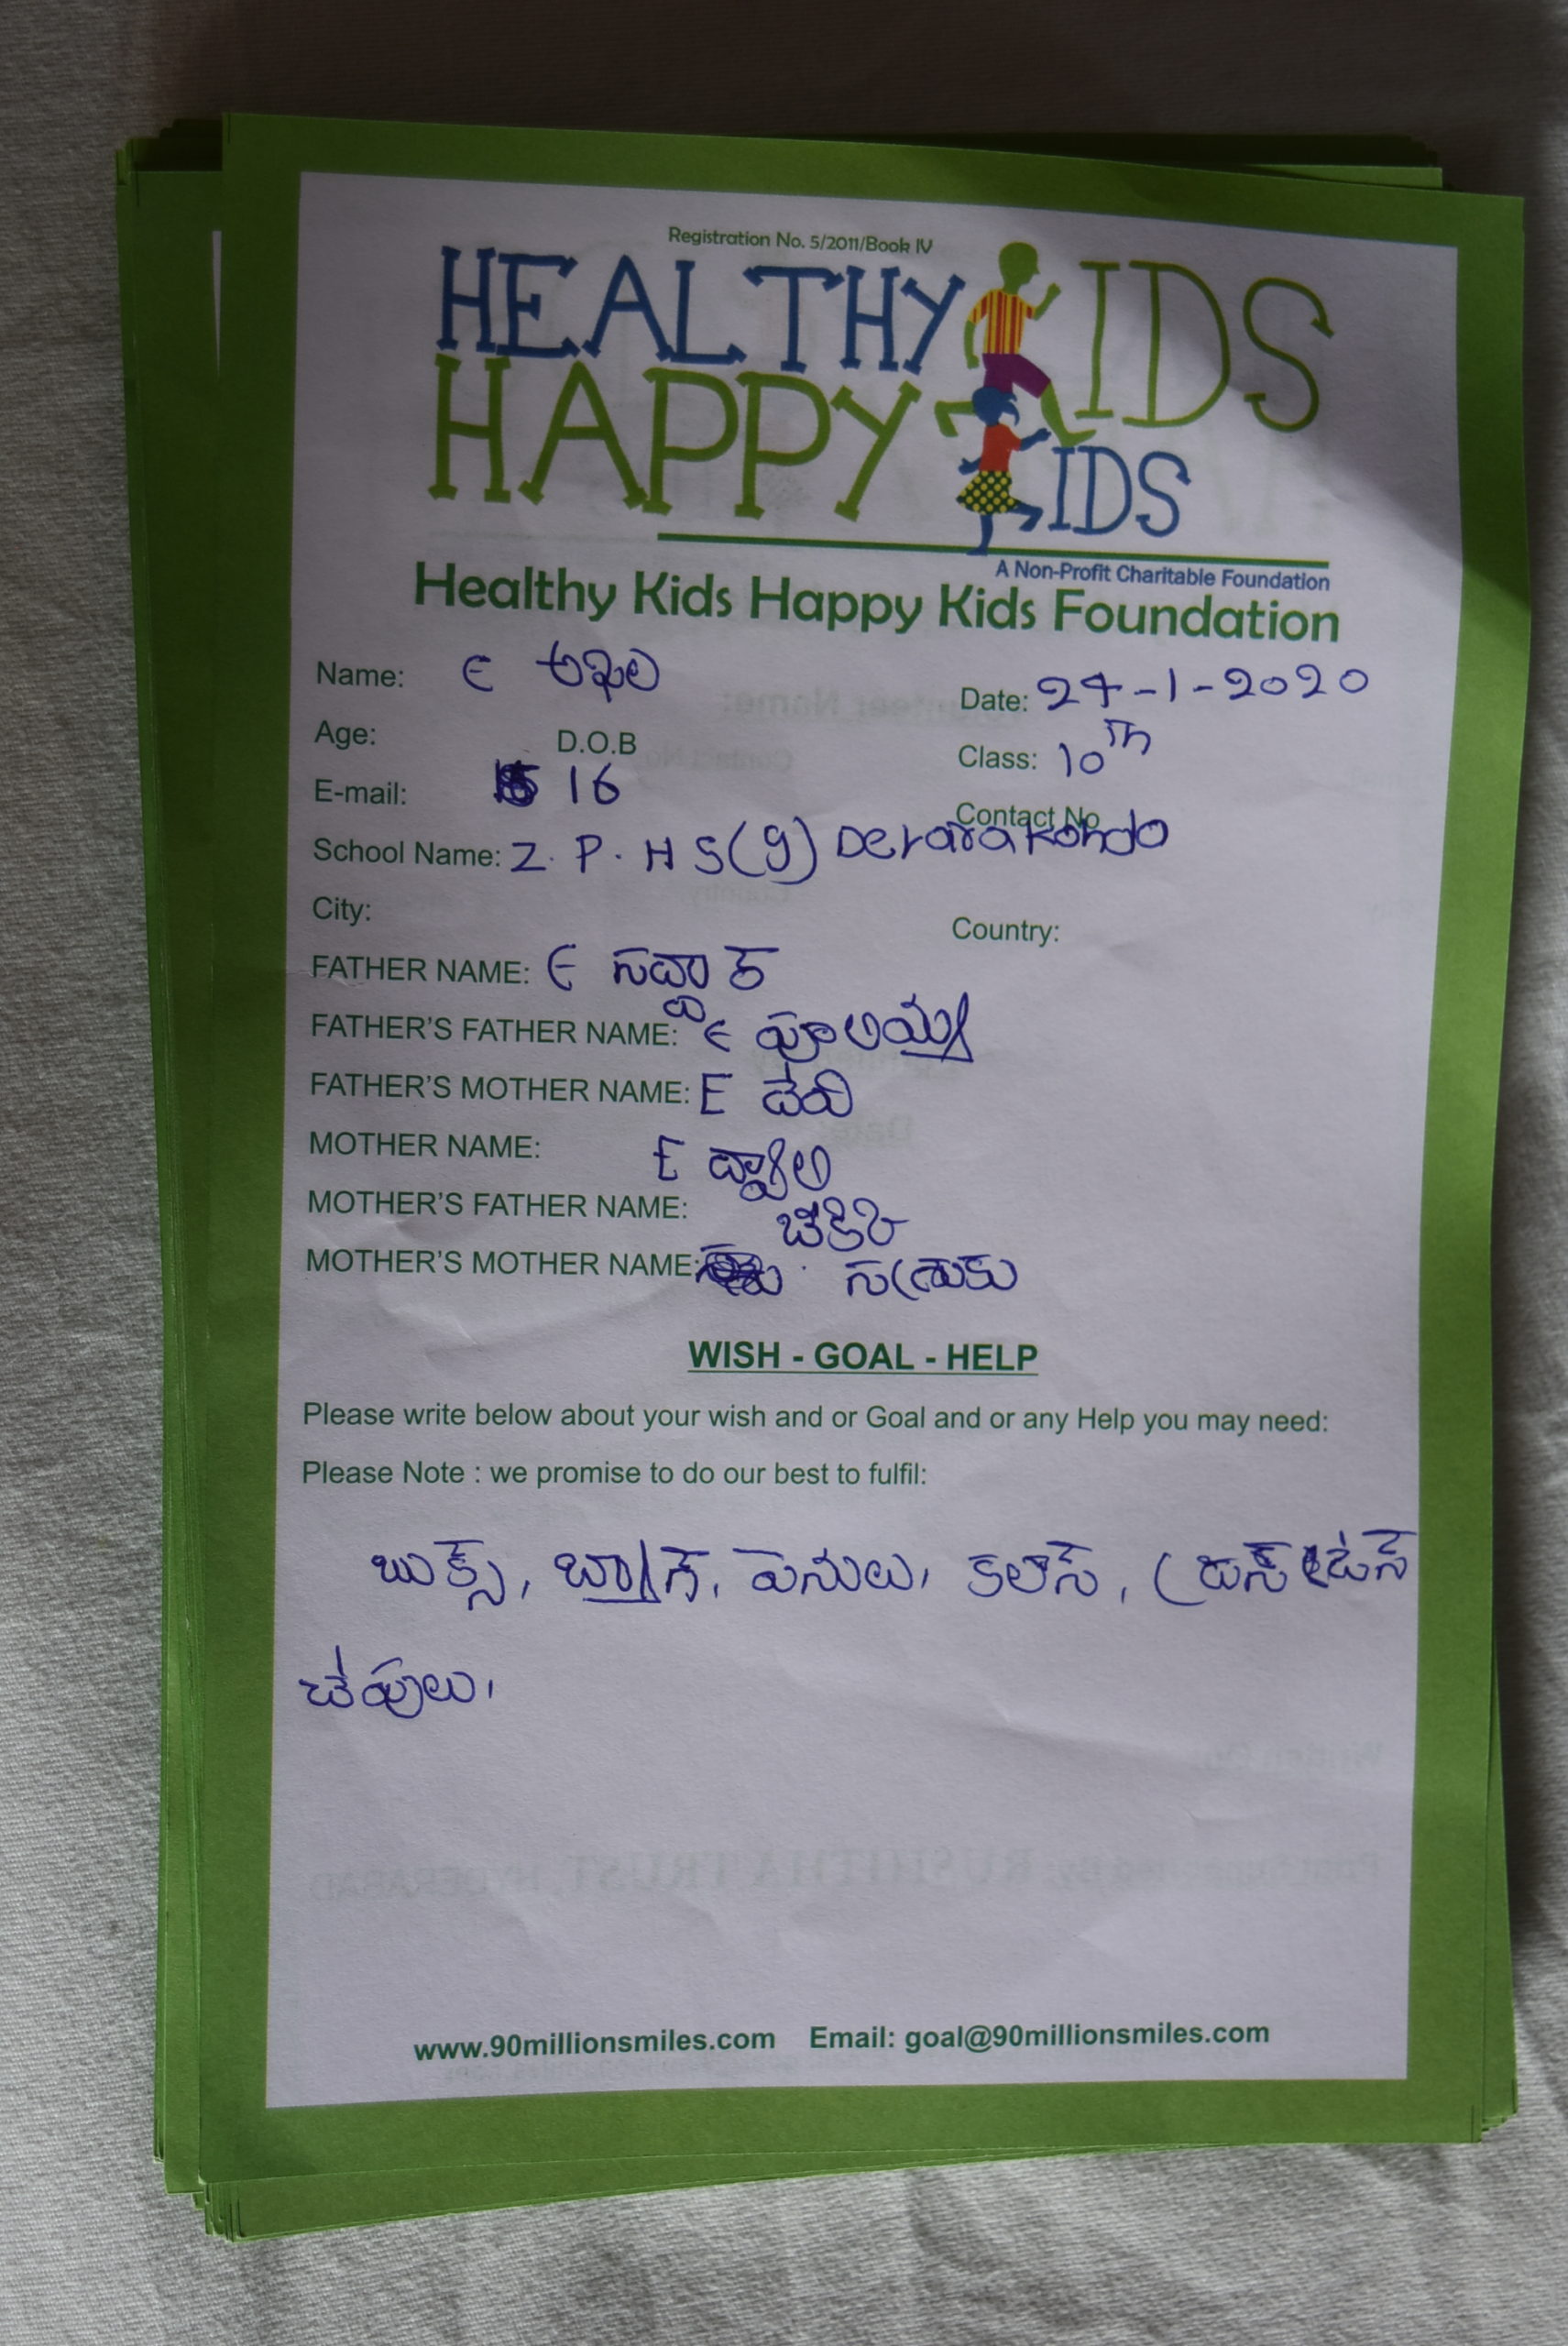 Registration No. 5/2011/Book IV
HEALTHY KIDS
HAPPY KIDS
A Non-Profit Charitable Foundation
Healthy Kids Happy Kids Foundation
Name: E అఖిల Date: 24-1-2020
Age: D.O.B Class: 10th
E-mail: 16 Contact No
School Name: Z. P. H S (g) Derarakondo
City: Country:
FATHER NAME: E
FATHER'S FATHER NAME: E పూలయ్య
FATHER'S MOTHER NAME: E దేవి
MOTHER NAME: E
MOTHER'S FATHER NAME:
MOTHER'S MOTHER NAME:
WISH - GOAL - HELP
Please write below about your wish and or Goal and or any Help you may need:
Please Note : we promise to do our best to fulfil:
బుక్స్, బ్యాగ్, పెనులు,
చేపులు,
www.90millionsmiles.com Email: goal@90millionsmiles.com